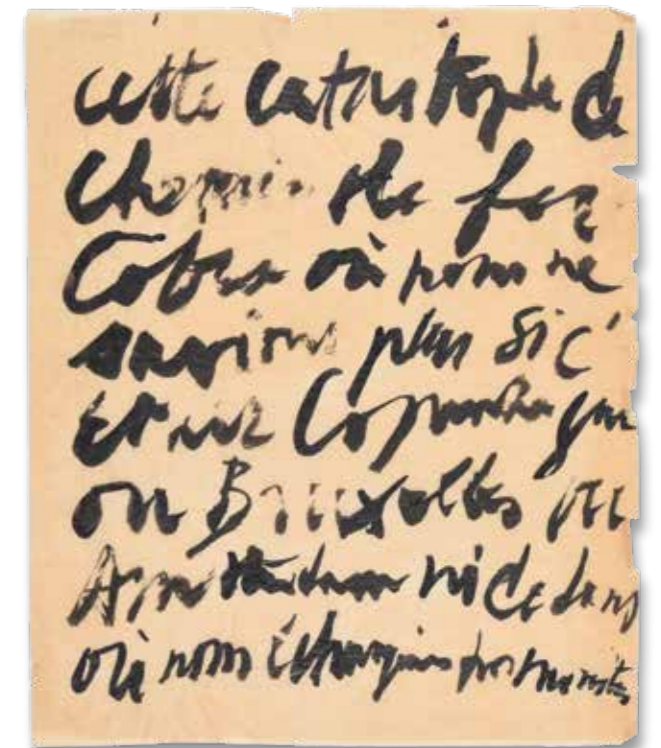 cette catastrophe de
chemin de fer
Cobra où nous ne
savions plus si c'
était Copenhague
ou Bruxelles ou
Amsterdam ni dedans
où nous échangions nos